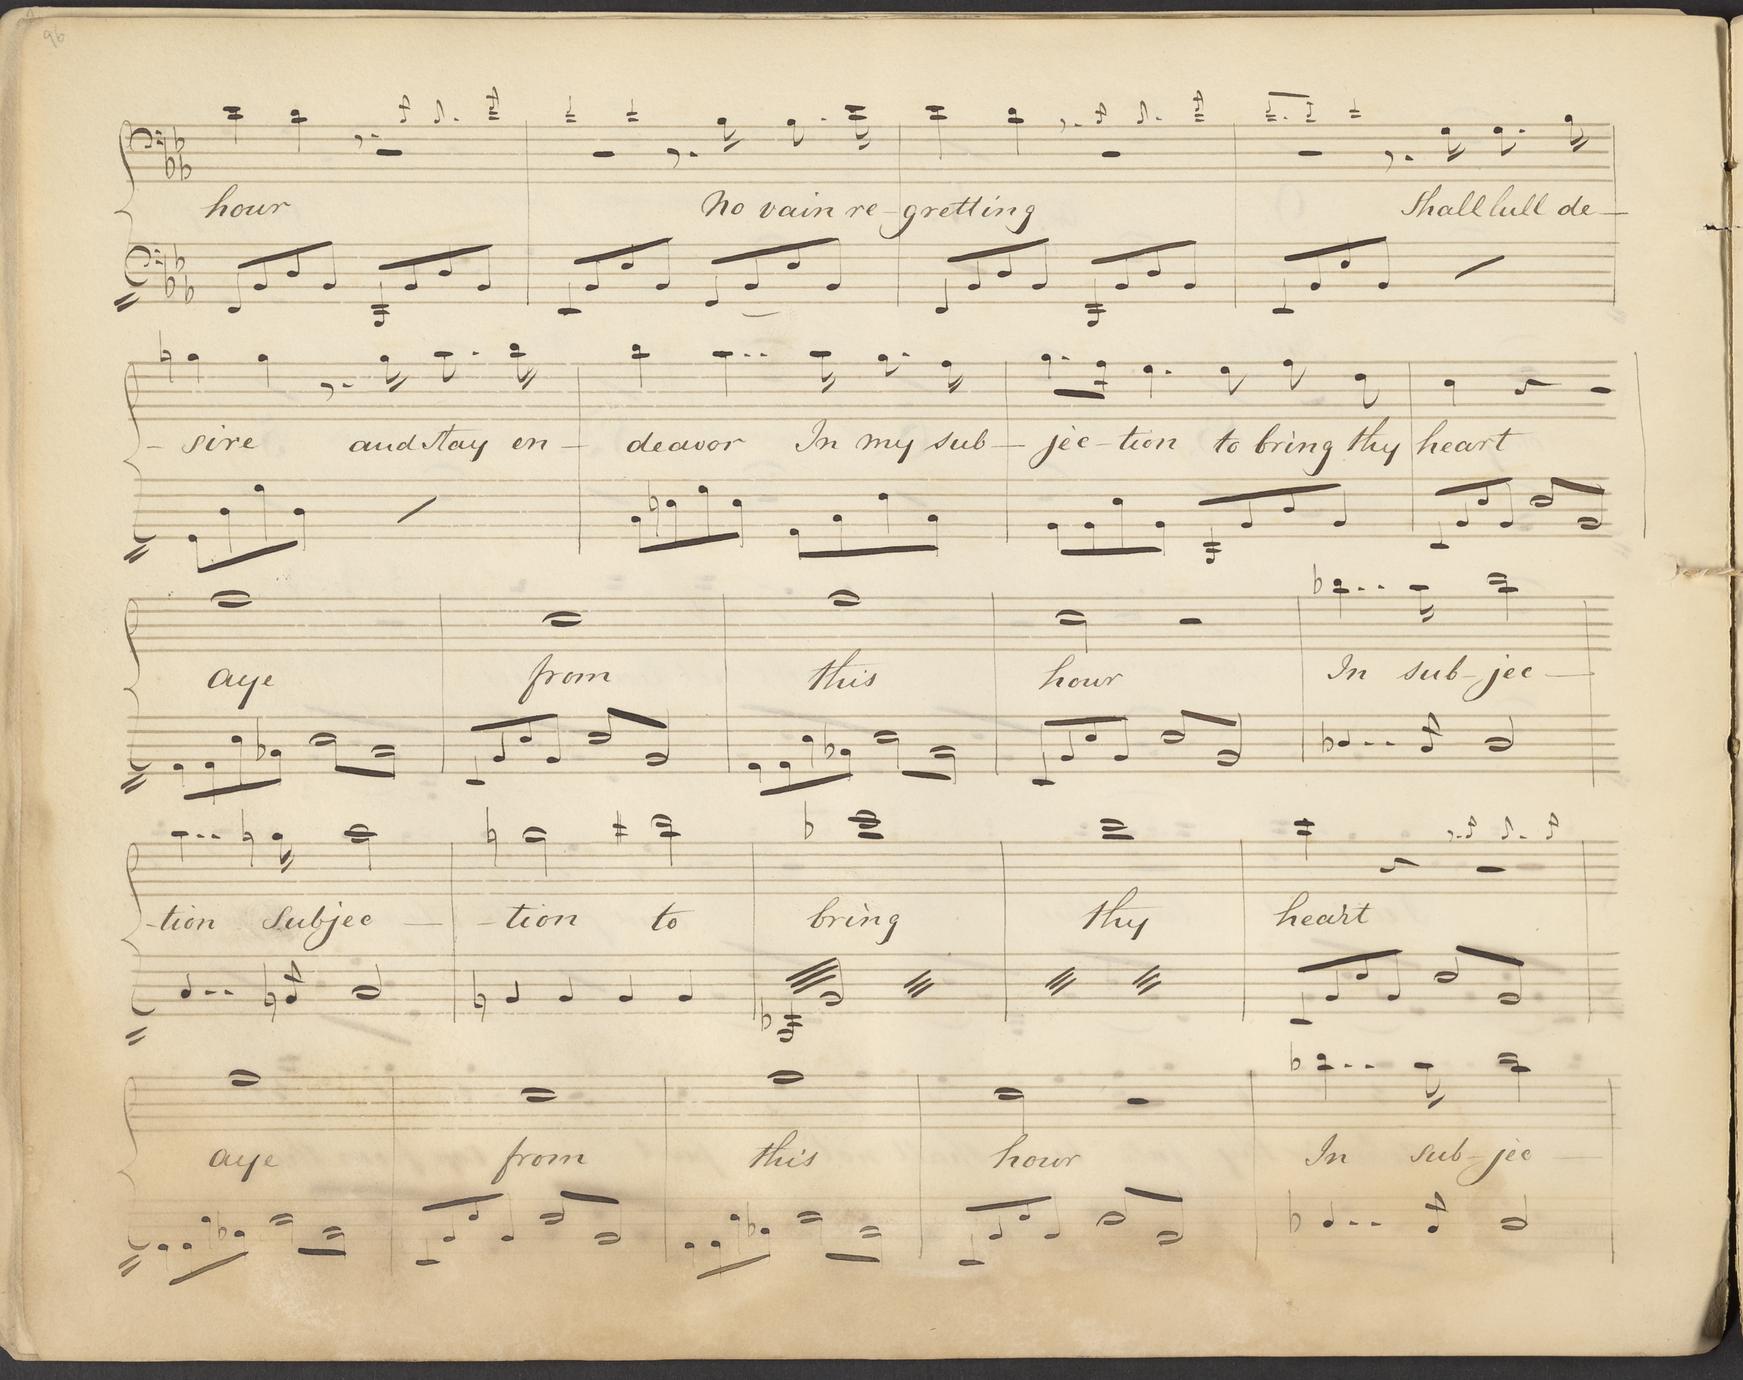 96
hour No vain re-gretting Shall lull de-
-sire and stay en-deavor In my sub-jec-tion to bring thy heart
aye from this hour In sub-jec-
-tion Subjec-tion to bring thy heart
aye from this hour In sub-jec-